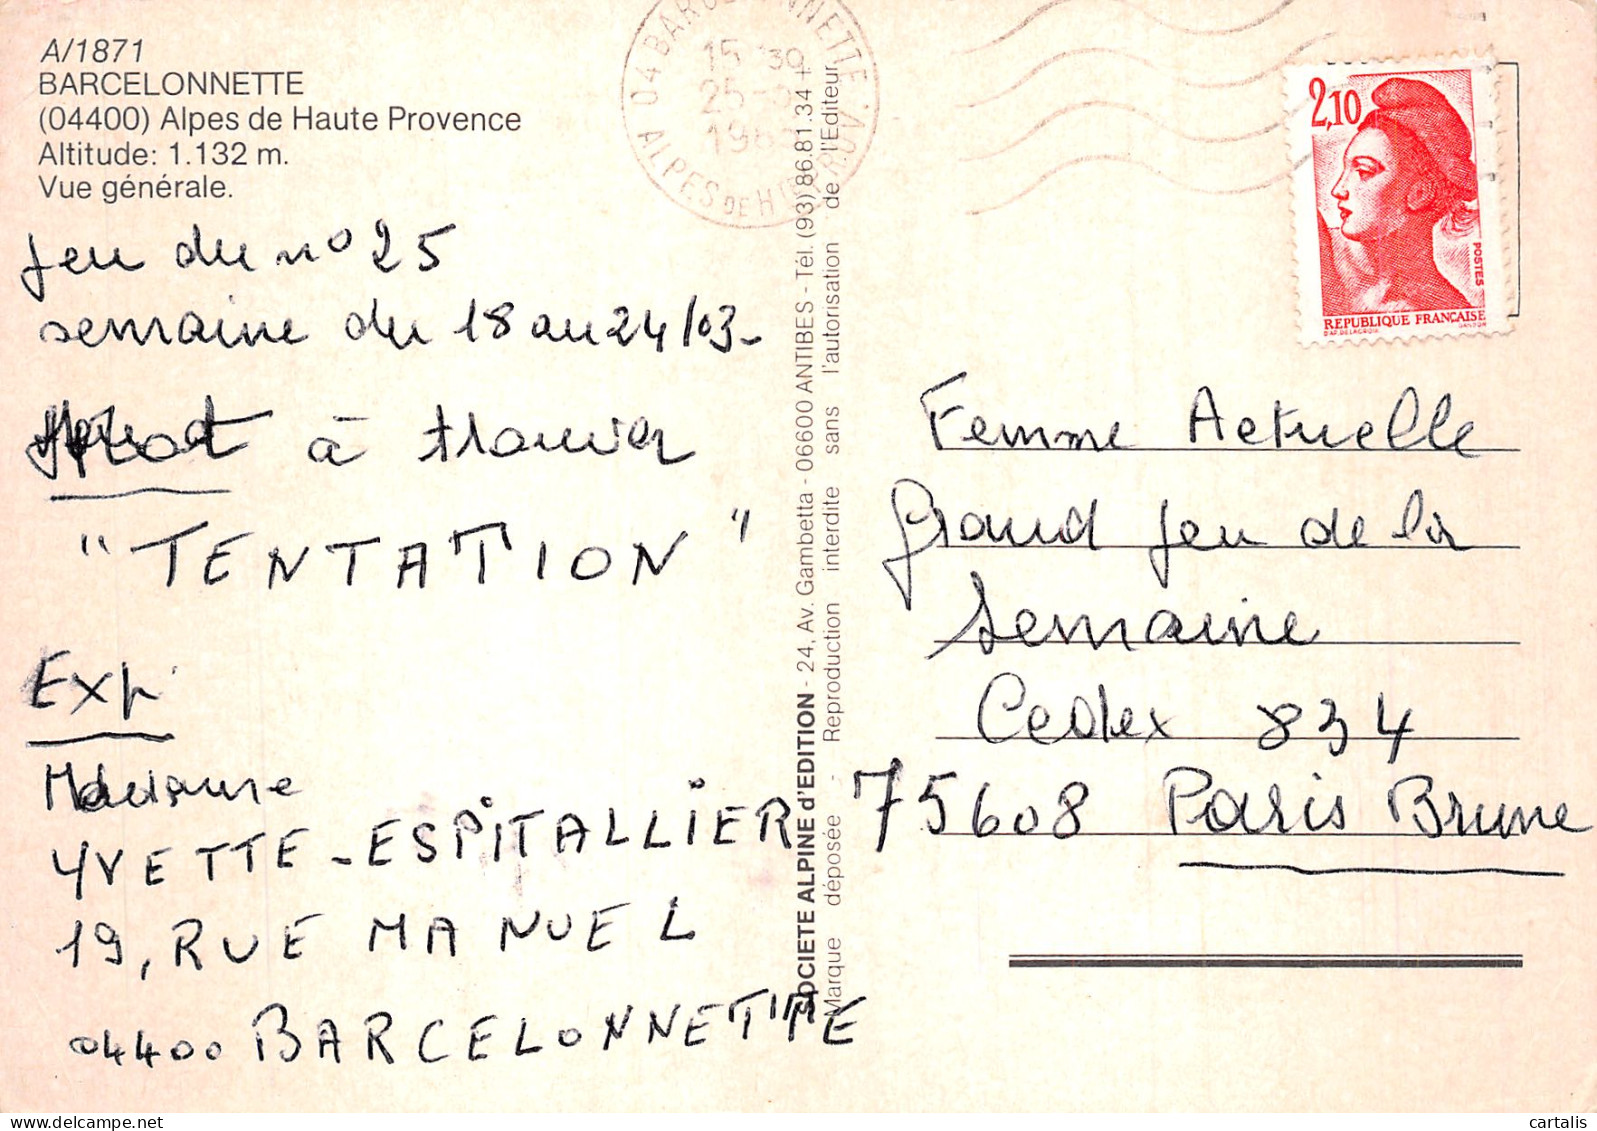 A/1871
BARCELONNETTE
(04400) Alpes de Haute Provence
Altitude: 1.132 m.
Vue générale.
Jeu du n° 25
semaine du 18 au 24/03-
Mot à trouver
"TENTATION"
Exp.
Madame
YVETTE-ESPITALLIER
19, RUE MANUEL
04400 BARCELONNETTE
SOCIETE ALPINE d'EDITION - 24, Av. Gambetta - 06600 ANTIBES - Tél. (93) 86.81.34 +
Marque déposée - Reproduction interdite sans l'autorisation de l'Editeur
04 BARCELONNETTE
15
25
ALPES DE HTE
2,10
POSTES
REPUBLIQUE FRANÇAISE
D'AP. DELACROIX GANDON
Femme Actuelle
Grand Jeu de la
Semaine
Cedex 834
75608 Paris Brune
cartalis